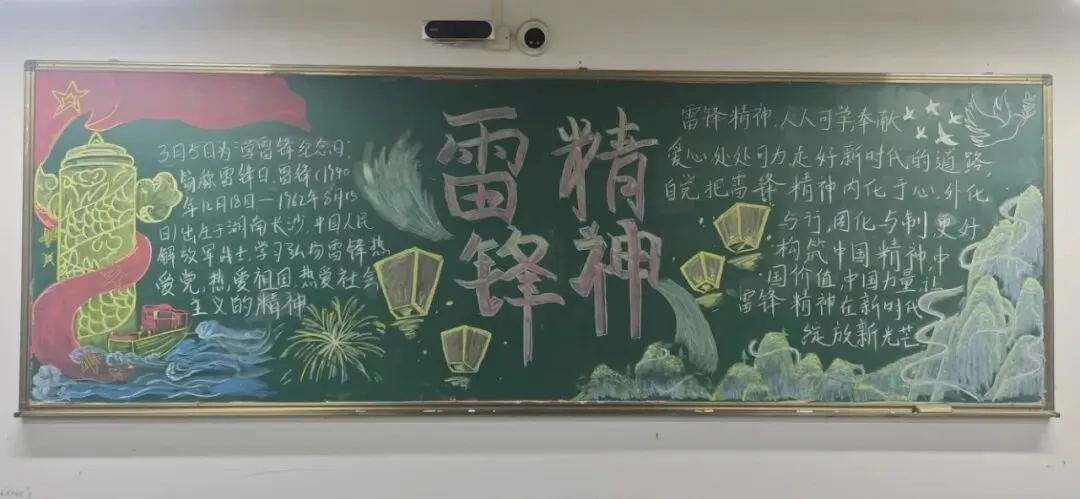 3月5日为学雷锋纪念日,
简称雷锋日,雷锋(1940
年12月18日—1962年8月15
日)出生于湖南长沙,中国人民
解放军战士,学习弘扬雷锋热
爱党,热爱祖国,热爱社会
主义的精神
雷锋
精神
雷锋精神,人人可学;奉献
爱心,处处可为,走好新时代的道路,
自觉把雷锋精神内化于心,外化
与行,固化与制,更好
构筑中国精神,中
国价值,中国力量,让
雷锋精神在新时代
绽放新光芒